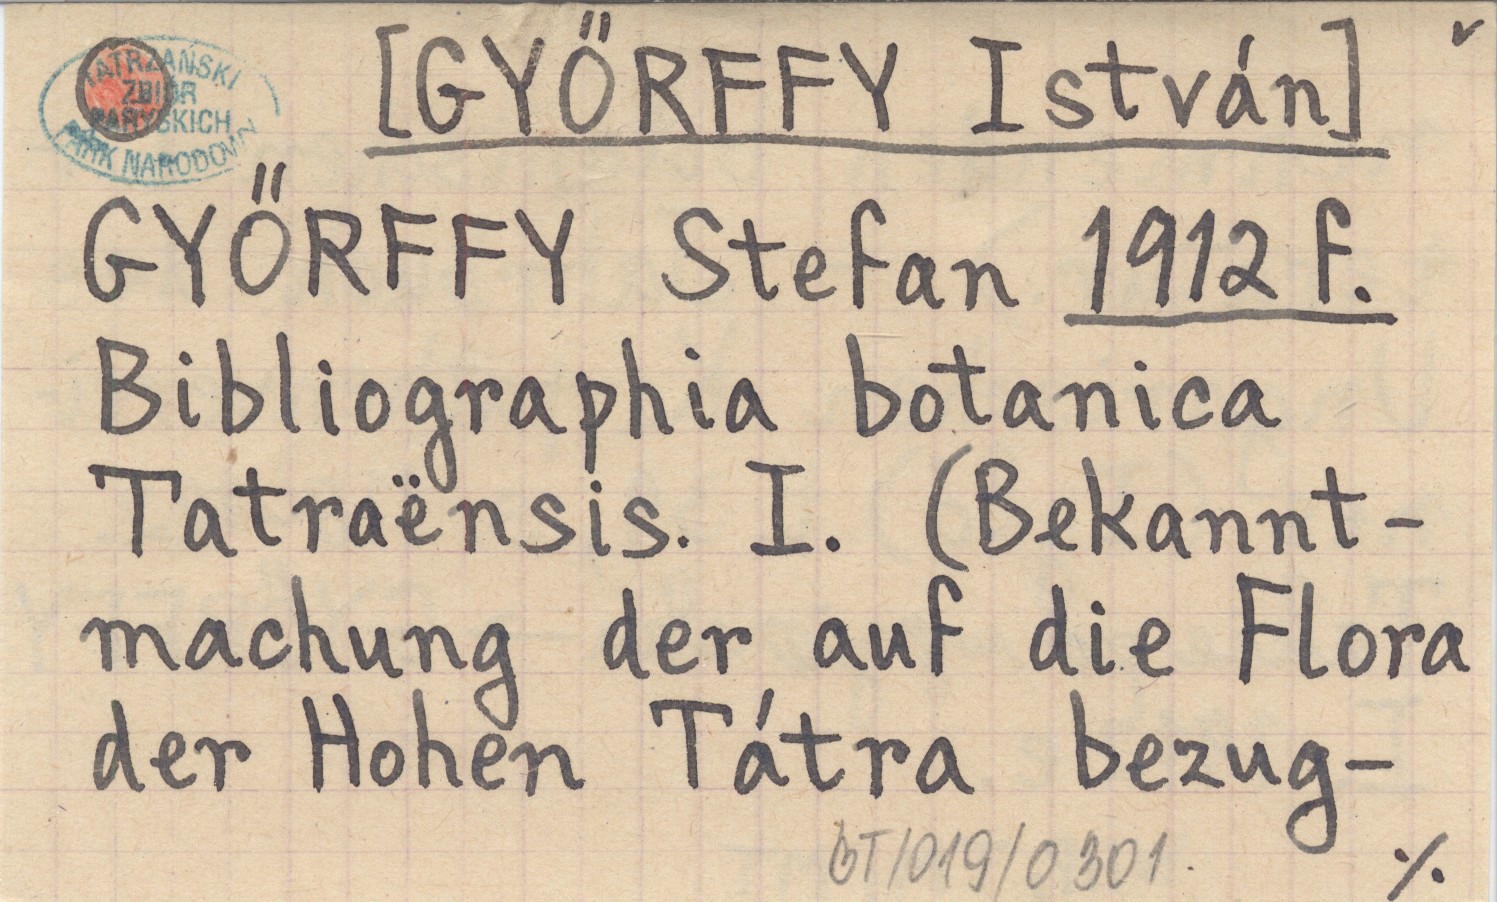 [GYŐRFFY István]
TATRZAŃSKI
ZBIÓR
PARYSKICH
PARK NARODOWY
GYŐRFFY Stefan 1912 f.
Bibliographia botanica
Tatraënsis. I. (Bekannt-
machung der auf die Flora
der Hohen Tátra bezug-
BT/019/0301.
·/.